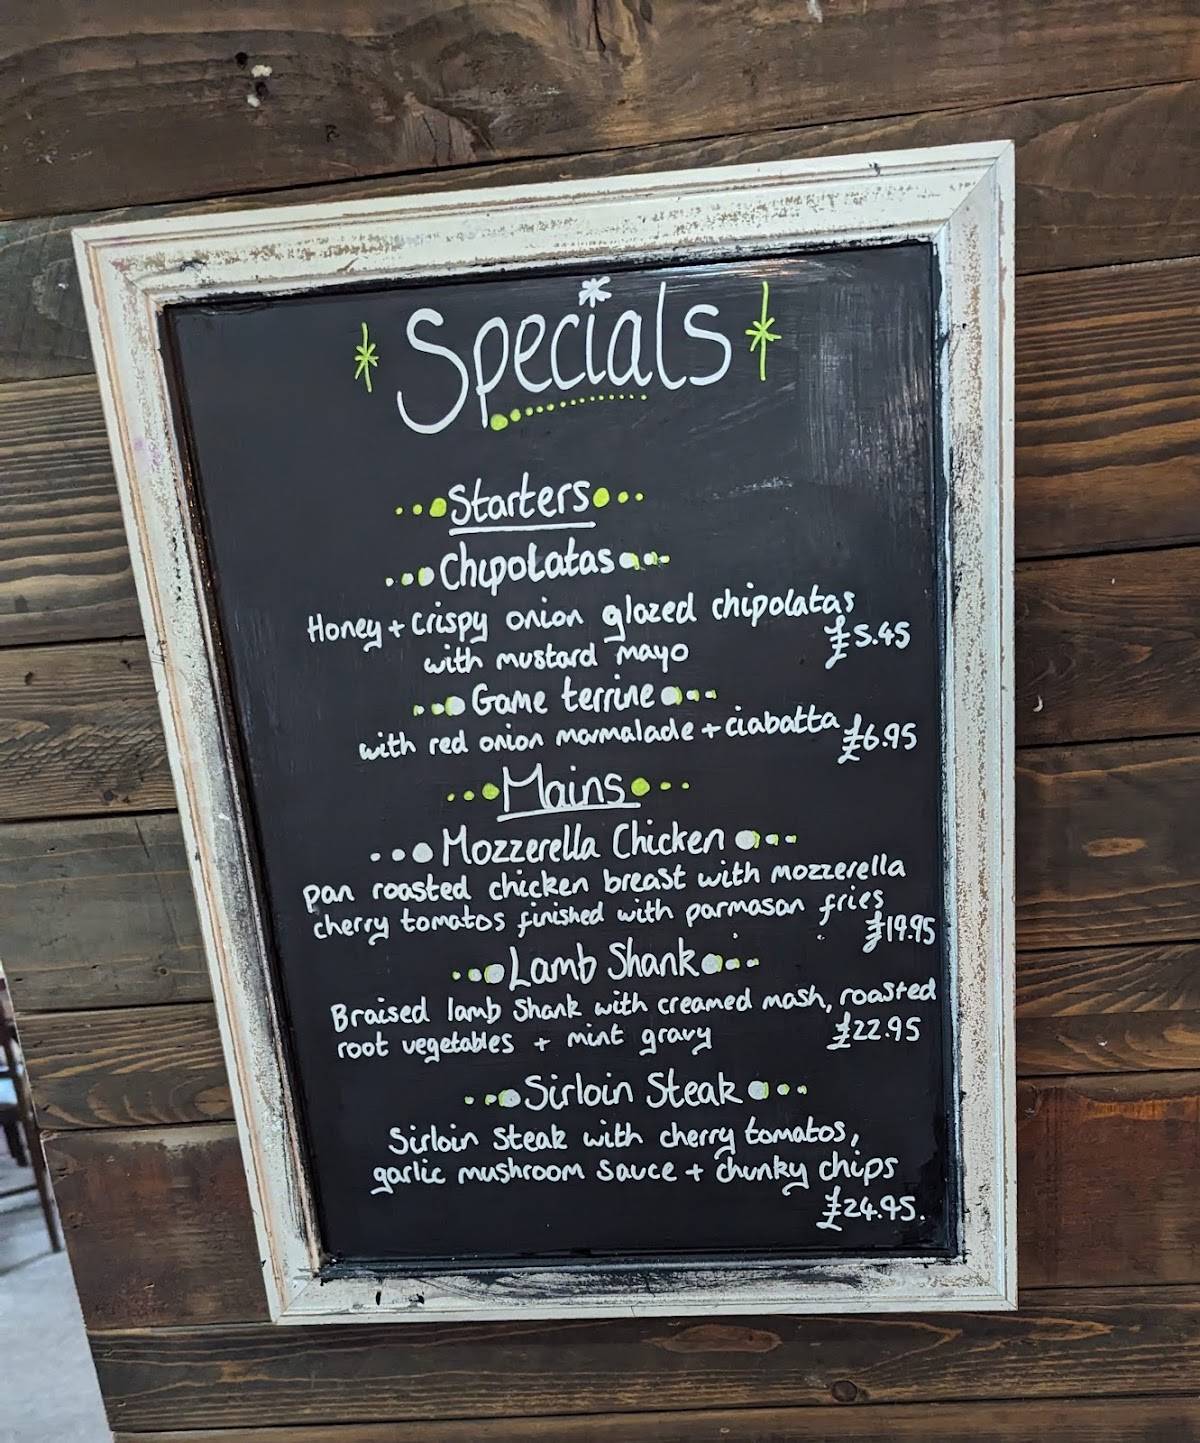 Specials
Starters
Chipolatas
Honey + Crispy onion glazed chipolatas
with mustard mayo £5.45
Game terrine
with red onion marmalade + ciabatta £6.95
Mains
Mozzerella Chicken
pan roasted chicken breast with mozzerella
cherry tomatos finished with parmasan fries
£19.95
Lamb Shank
Braised lamb Shank with creamed mash, roasted
root vegetables + mint gravy £22.95
Sirloin Steak
Sirloin Steak with cherry tomatos,
garlic mushroom Sauce + chunky chips
£24.95.